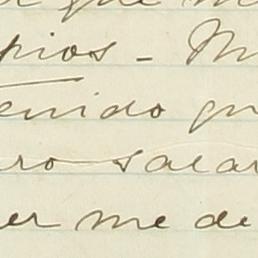 que m
pios - M
enido qu
ro sacar
er me de